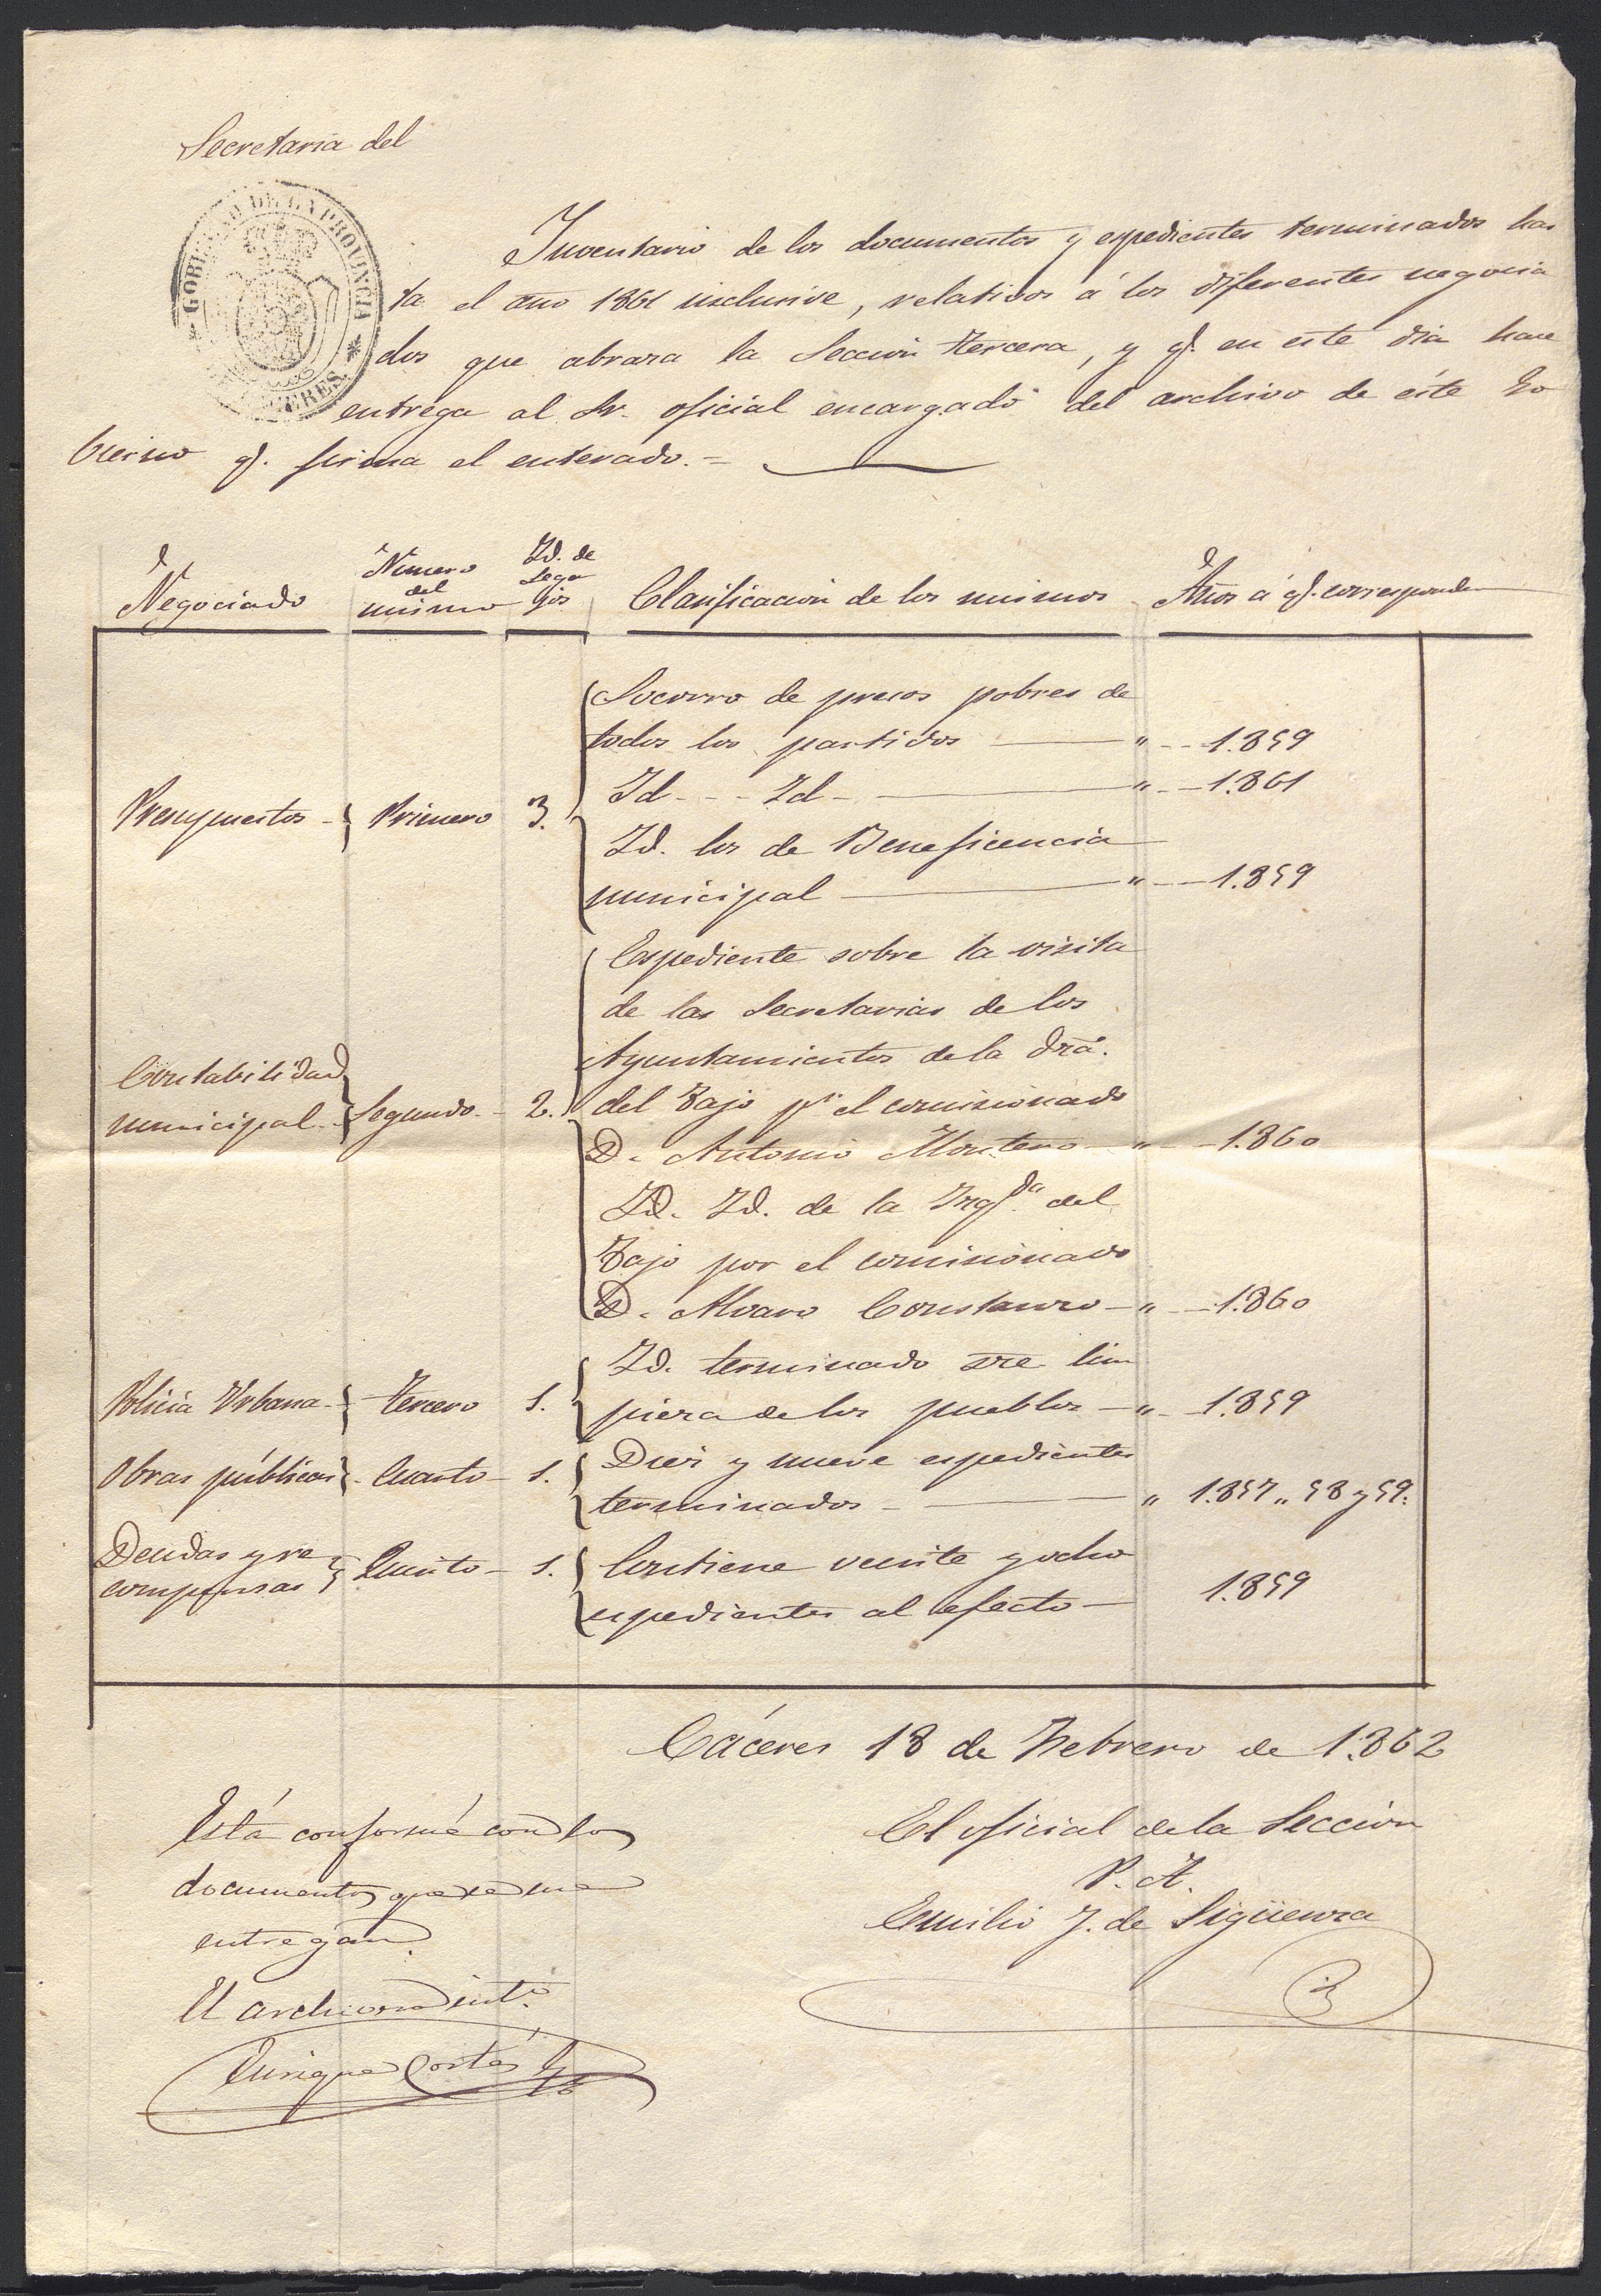 Secretaria del
GOBIERNO DE LA PROVINCIA
DE CACERES.
Inventario de los documentos y espedientes terminados has
ta el año 1861 inclusive, relativos á los diferentes negocia
dos que abraza la Seccion tercera, y q. en este dia hace
entrega al Sr. oficial encargado del archivo de éste Go
bierno q. firma el enterado.=
Negociado
Número del mismo
Id. de Lega jos
Clasificacion de los mismos
Años á q. corresponden
Socorro de presos pobres de
todos los partidos — " -- 1.859
Id - - - Id - — " -- 1.861
Presupuestos - Primero 3.
Id. los de Beneficencia
municipal — " -- 1.859
Espediente sobre la visita
de las Secretarias de los
Ayuntamientos de la dra.
Contabilidad
municipal. Segundo - 2. del Tajo pr. el comisionado
D. Antonio Montero — " - 1.860
Id. Id. de la Izqda. del
Tajo por el comisionado
D. Alvaro Constanzo — " -- 1.860
Id. terminado sre lim
Policia Urbana - tercero 1. pieza de los pueblos — " - 1.859
Obras públicas - Cuarto - 1. Diez y nueve espedientes
terminados - — " 1.857 " 58 y 59.
Deudas y re
compensas Quinto - 1. Contiene veinte y ocho
espedientes al efecto — 1.859
Cáceres 18 de Febrero de 1.862
Está conforme con los
documentos que se me
entregan.
El archivero int.o
Enrique Cortés
El oficial de la Seccion
P. A.
Emilio J. de Sigüenza